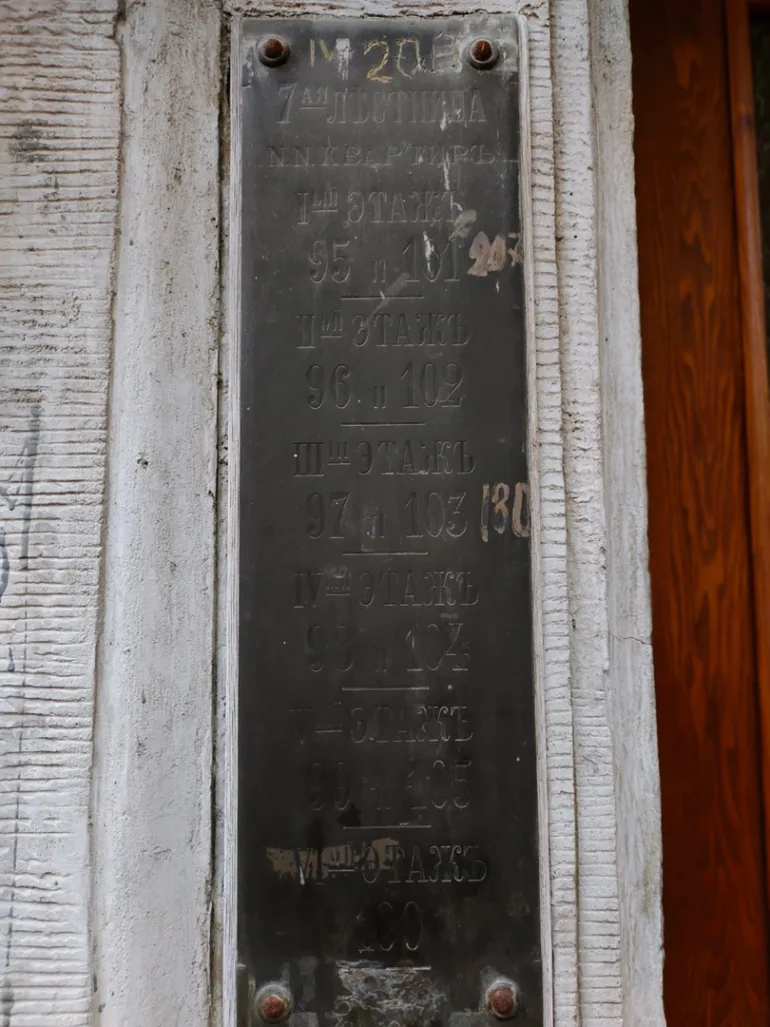 7ая ЛѢСТНИЦА
NN. КВАРТИРЪ
Iый ЭТАЖЪ
95 и 101
IIой ЭТАЖЪ
96 и 102
IIIий ЭТАЖЪ
97 и 103
180
IVый ЭТАЖЪ
98 и 104
Vй ЭТАЖЪ
99 и 105
VIой ЭТАЖЪ
100